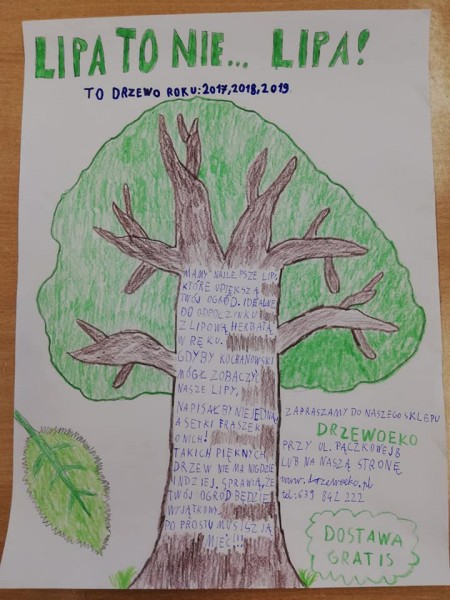 LIPA TO NIE... LIPA!
TO DRZEWO ROKU: 2017, 2018, 2019
MAMY NAJLEPSZE LIPY,
KTÓRE UPIĘKSZĄ
TWÓJ OGRÓD. IDEALNE
DO ODPOCZINKU
Z LIPOWĄ HERBATĄ
W RĘKU.
GDYBY KOCHANOWSKI
MÓGŁ ZOBACZYĆ
NASZE LIPY,
NAPISAŁBY NIE JEDNĄ,
A SETKI FRASZEK
O NICH!
TAKICH PIĘKNYCH
DRZEW NIE MA NIGDZIE
INDZIEJ. SPRAWIĄ, ŻE
TWÓJ OGRÓD BĘDZIE
WYJĄTKOWY.
PO PROSTU MUSISZ JĄ
MIEĆ!!!
ZAPRASZAMY DO NASZEGO SKLEPU
DRZEWOEKO
PRZY UL. PĄCZKOWEJ 8
LUB NA NASZĄ STRONĘ
www.drzewoeko.pl
tel: 639 842 222
DOSTAWA
GRATIS